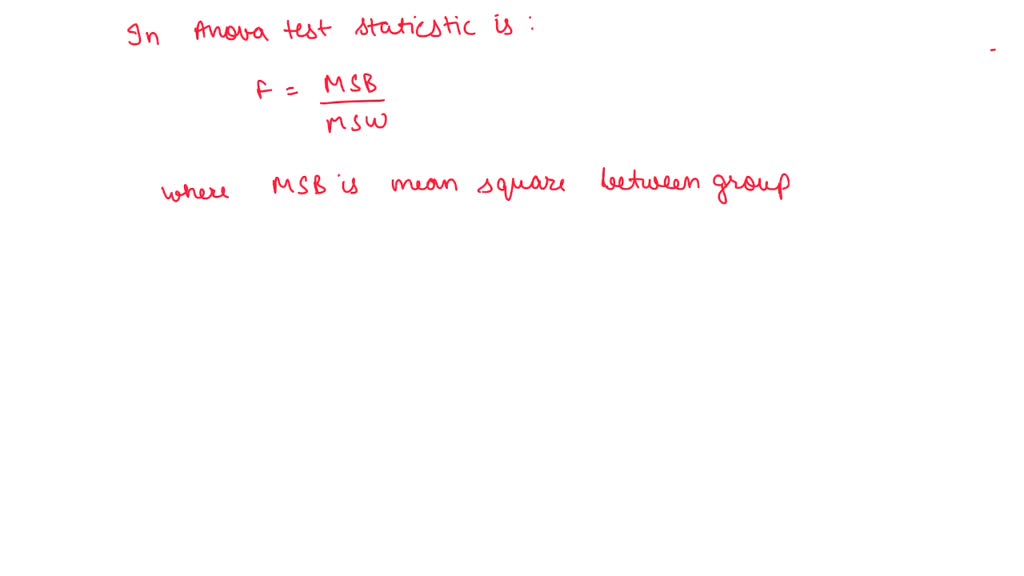 In Anova test staticstic is :
F = MSB
MSW
where MSB is mean square between group